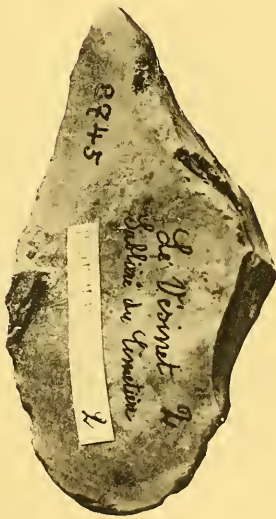 8745
Le Vesinet
Sablière du Cimetière
2